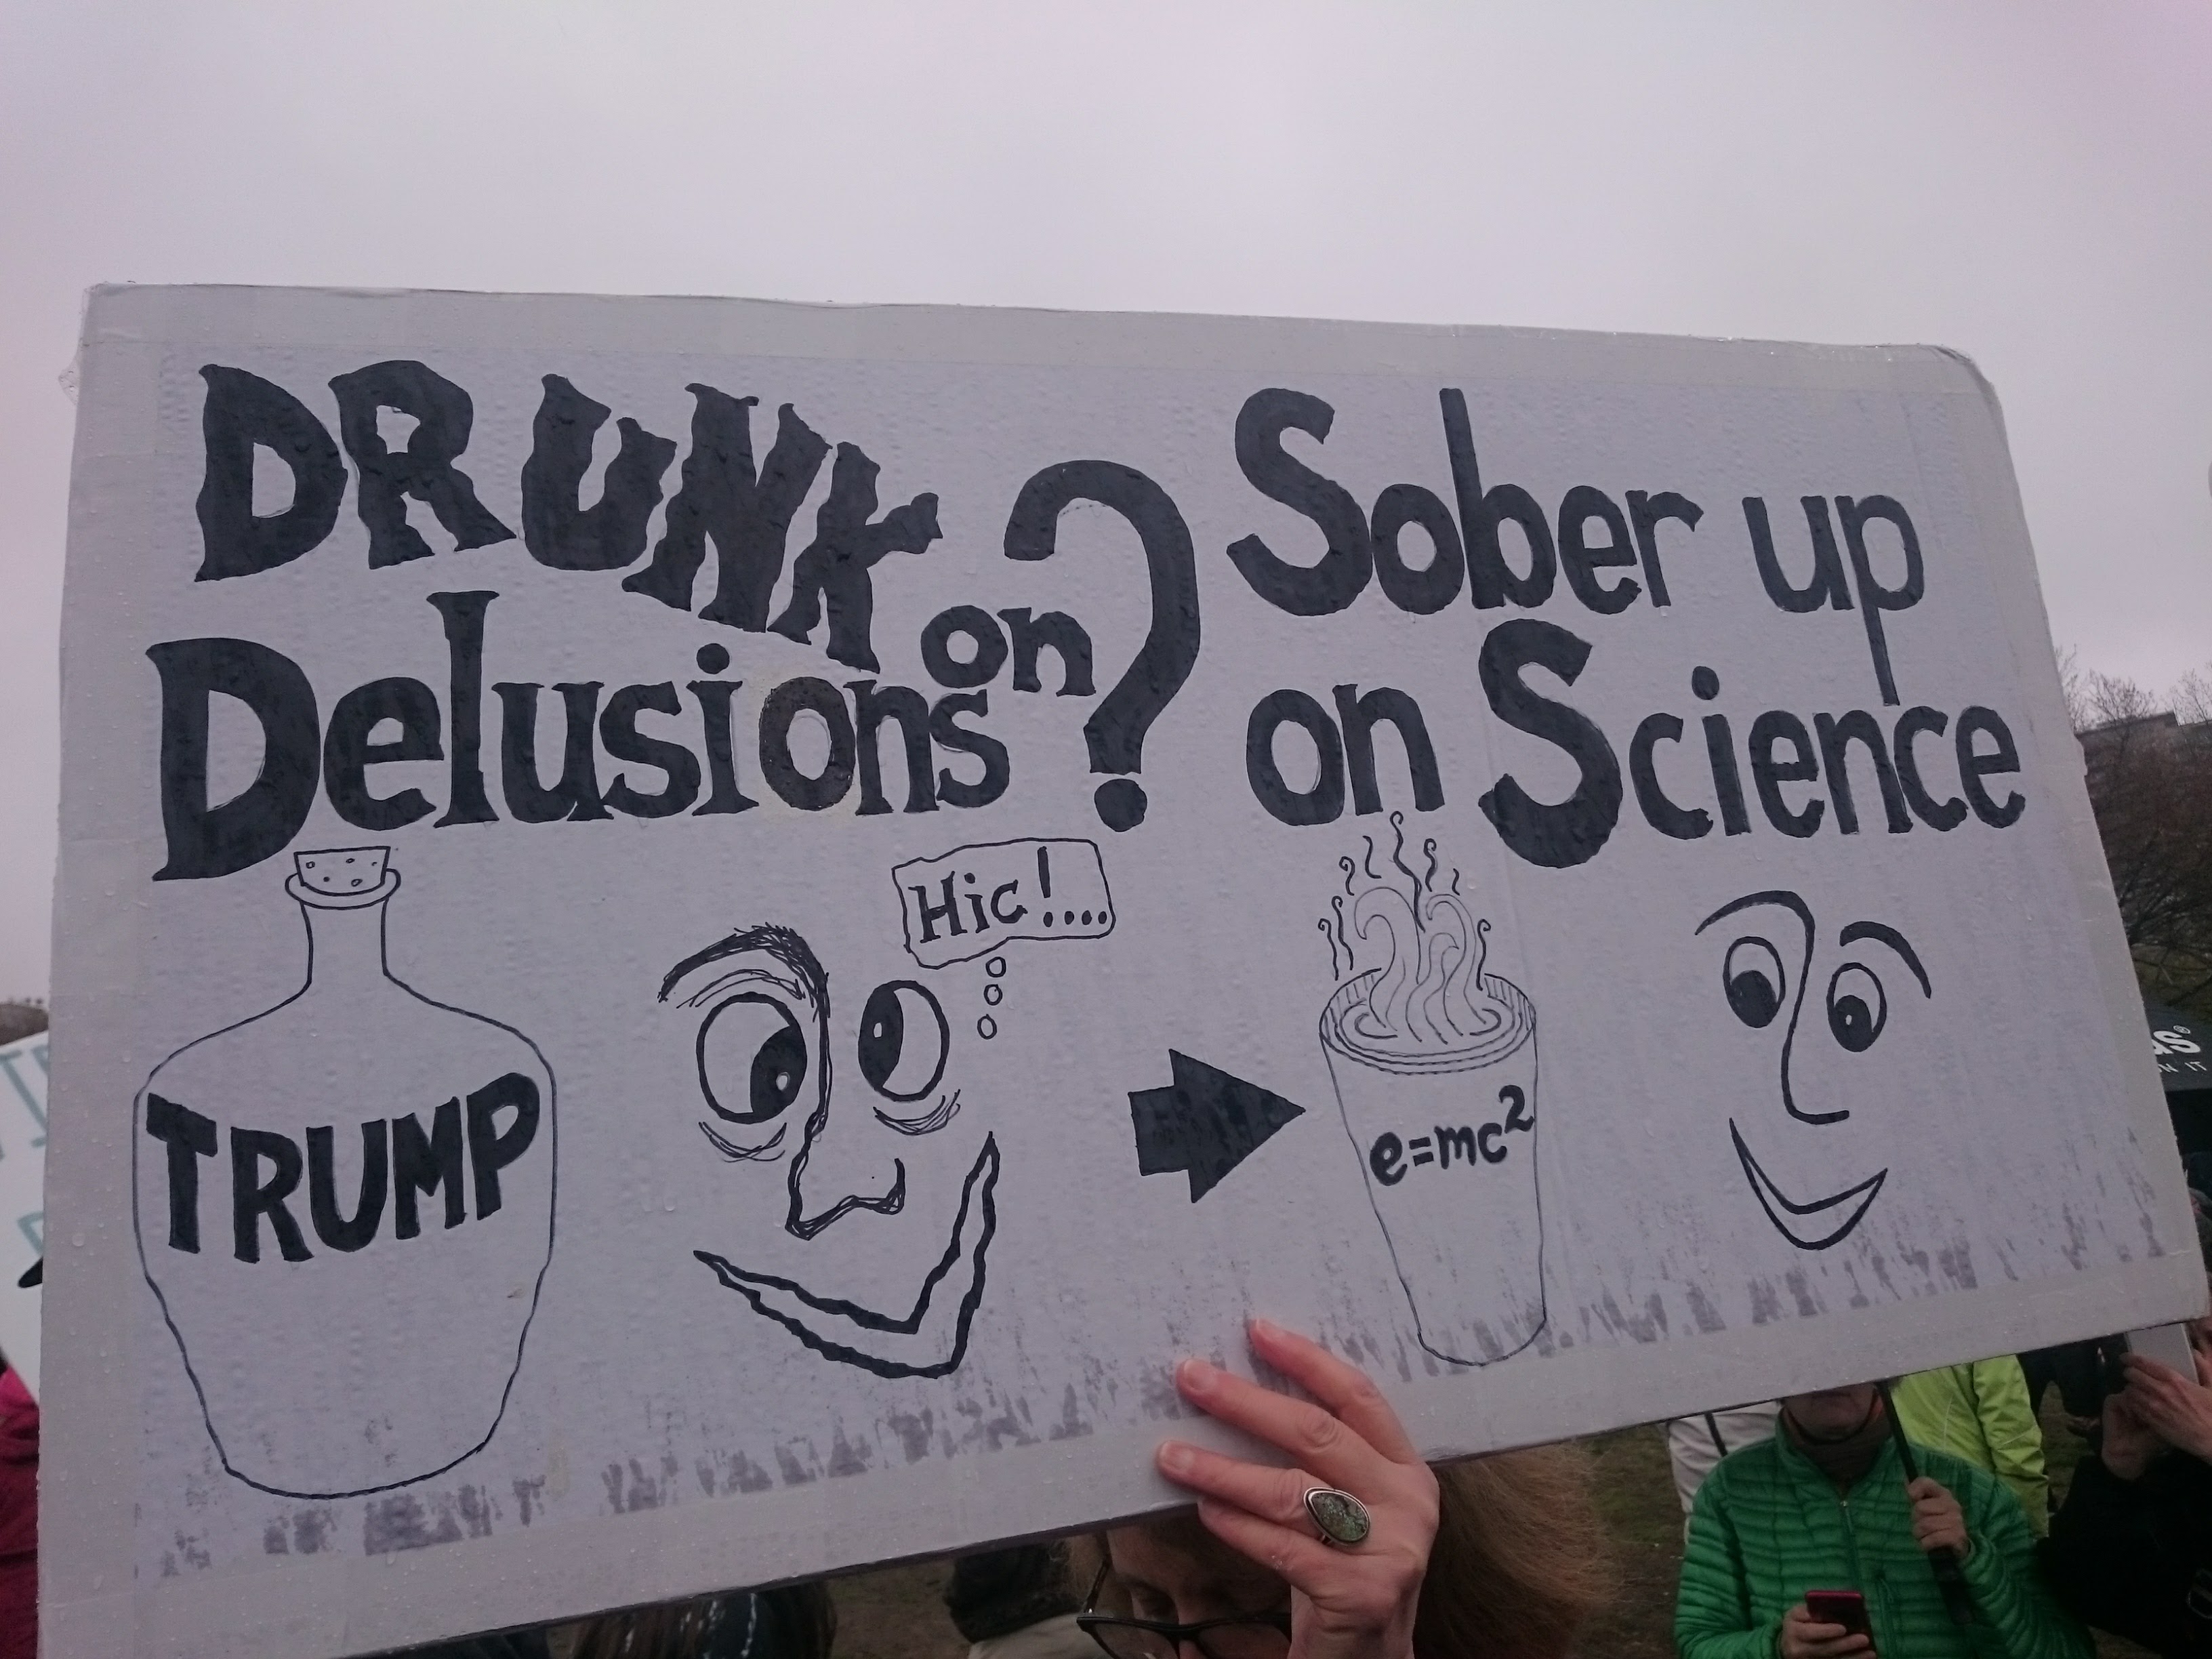 DRUNK on
Delusions?
Sober up
on Science
Hic!....
TRUMP
e=mc²